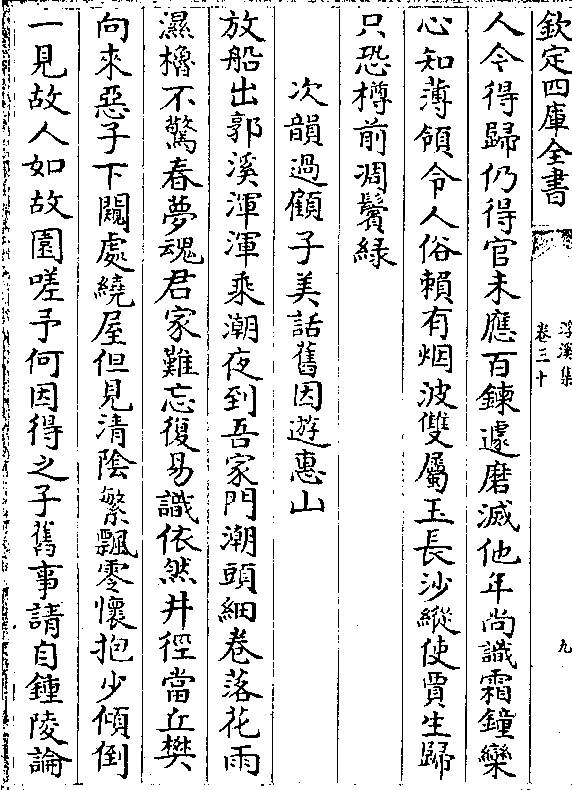 欽定四庫全書
浮溪集
卷三十
九
人今得歸仍得官未應百鍊遽磨滅他年尚識霜鐘欒
心知薄領令人俗賴有烟波雙屬玉長沙縱使賈生歸
只恐樽前凋鬢緑
次韻過顧子美話舊因遊惠山
放船出郭溪渾渾乘潮夜到吾家門潮頭細卷落花雨
濕櫓不驚春夢魂君家難忘復易識依然井徑當丘樊
向來惡子下闚處繞屋但見清陰繁飄零懷抱少傾倒
一見故人如故園嗟予何因得之子舊事請自鍾陵論